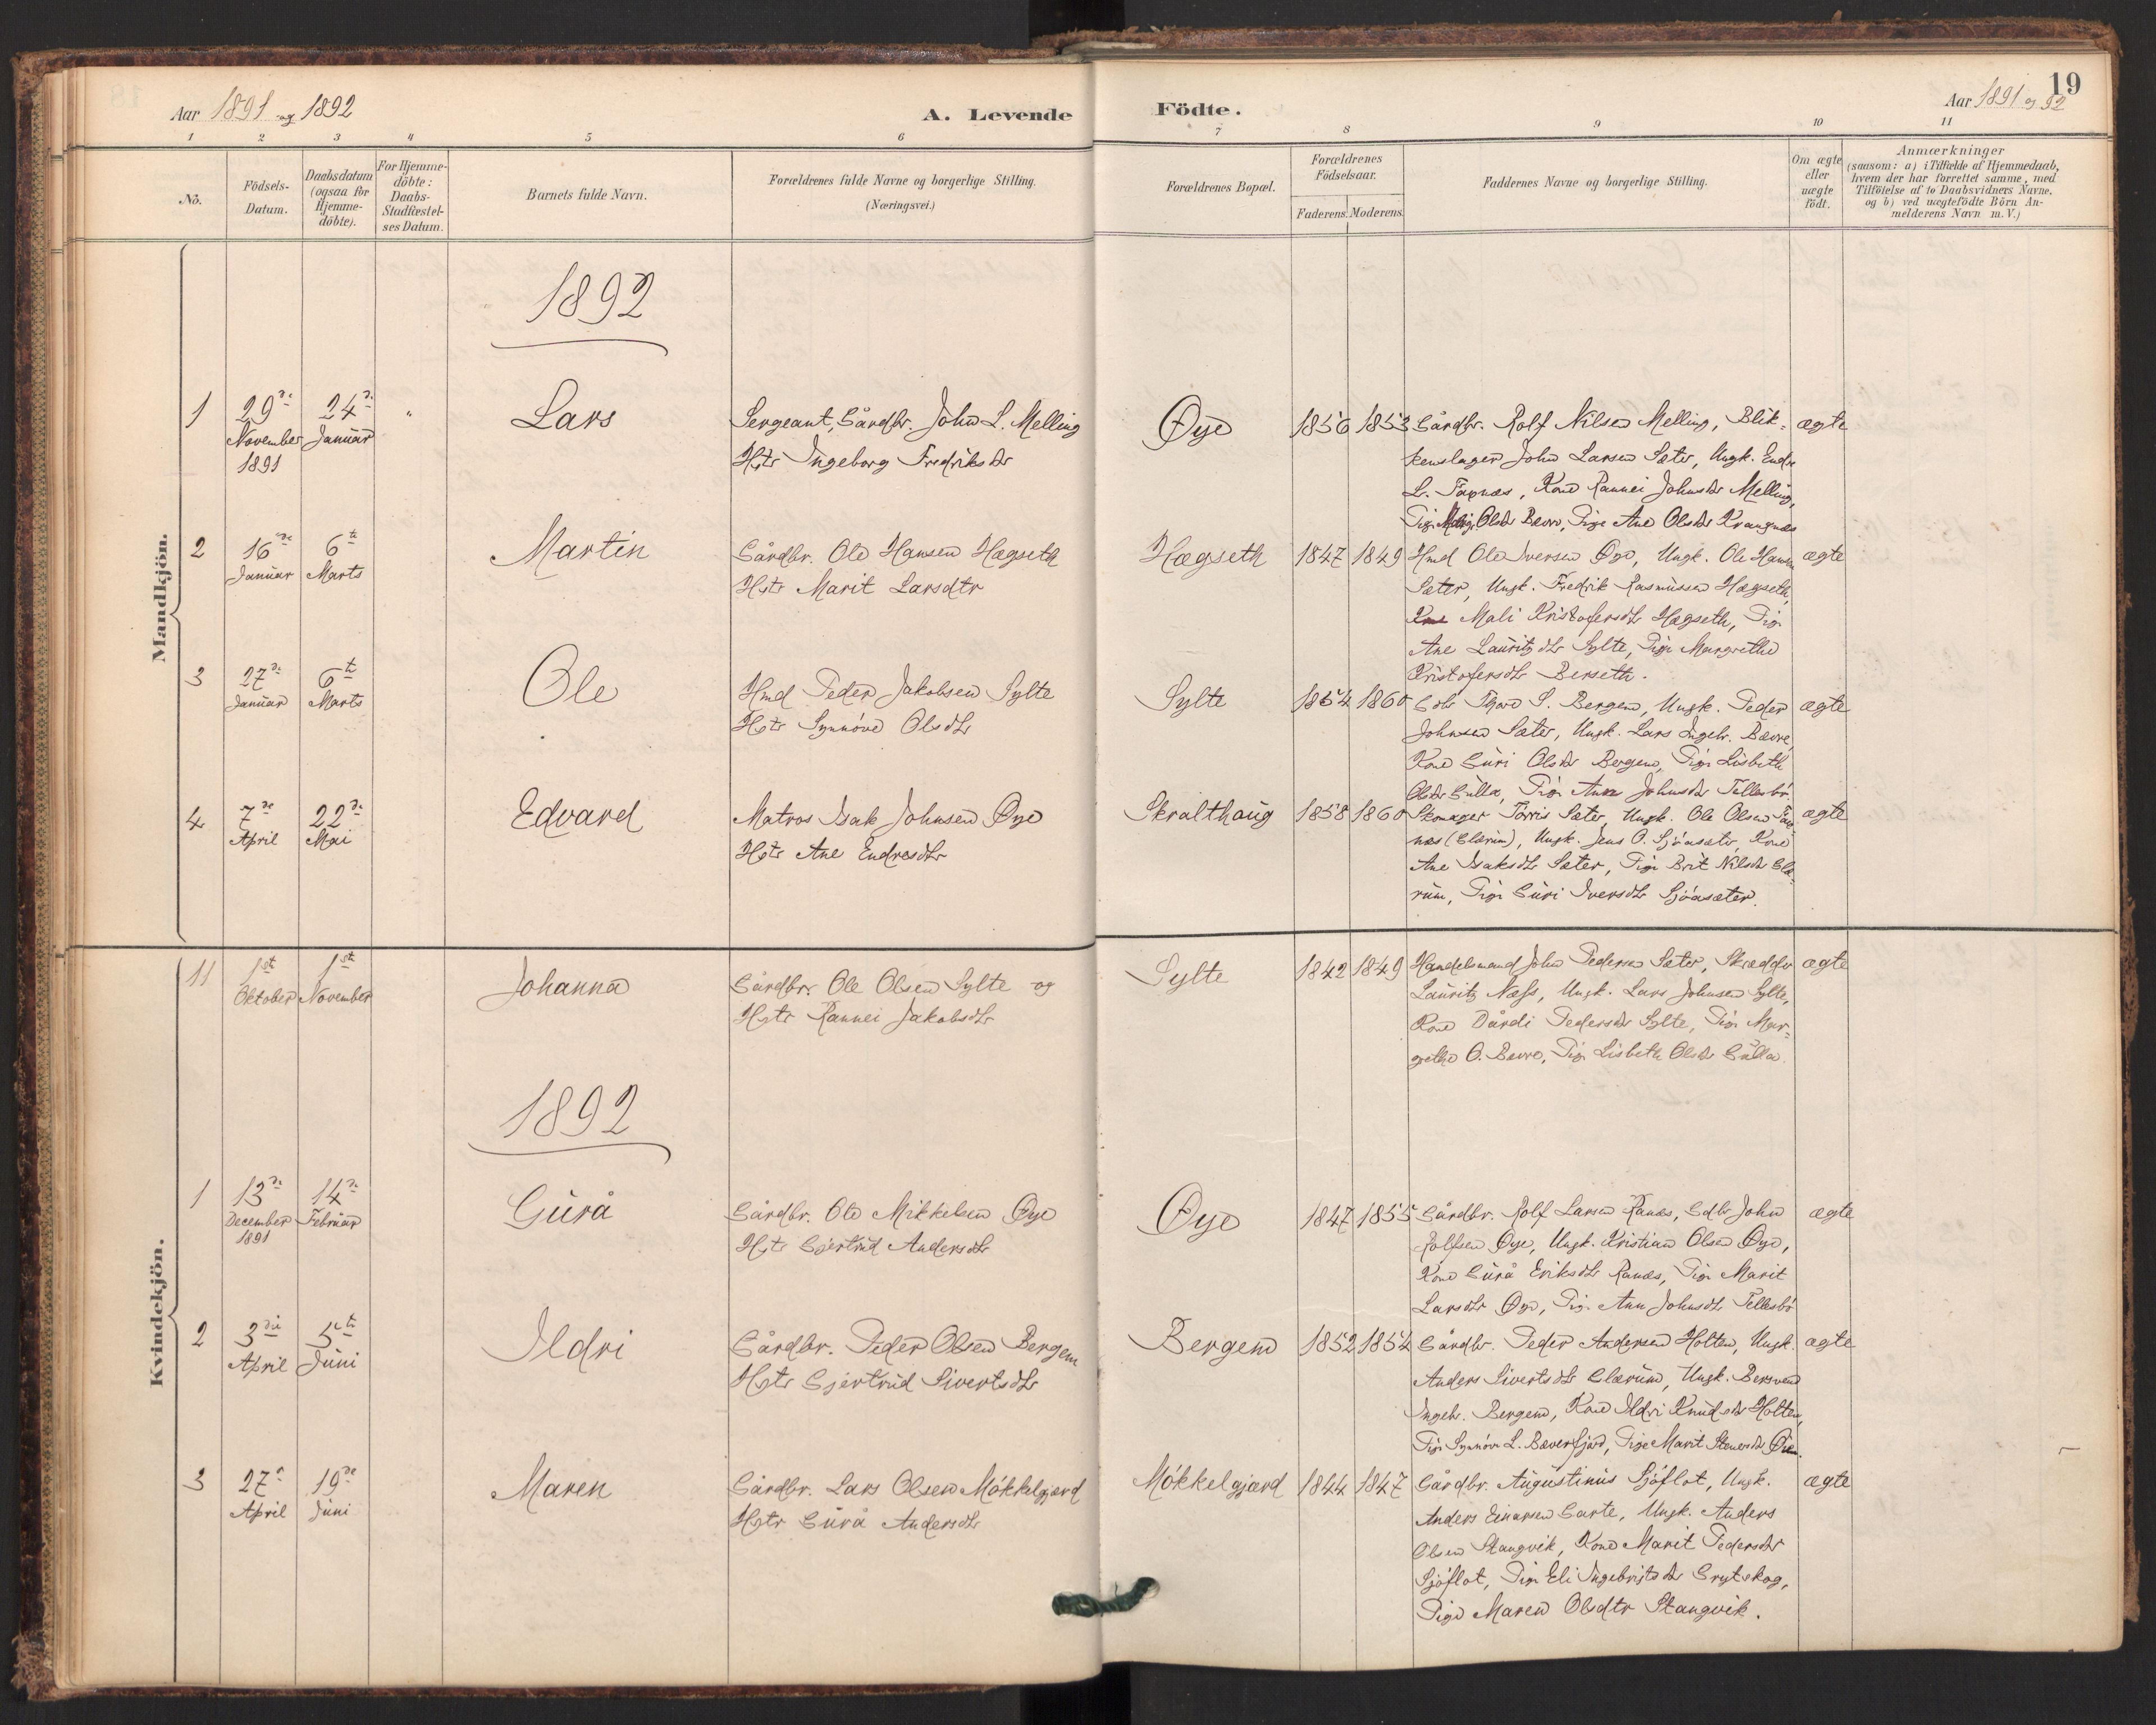 Aar 1891 og 1892
A. Levende
Födte.
Aar 1891 og 92
19
1 2 3 4 5 6 7 8 9 10 11
No.
Födsels-
Datum.
Daabsdatum
(ogsaa for
Hjemme-
döbte).
For Hjemme-
döbte:
Daabs-
Stadfæstel-
ses Datum.
Barnets fulde Navn.
Forældrenes fulde Navne og borgerlige Stilling.
(Næringsvei.)
Forældrenes Bopæl.
Forældrenes
Födselsaar.
Faderens. Moderens.
Faddernes Navne og borgerlige Stilling.
Om ægte
eller
uægte
födt.
Anmærkninger
(saasom: a) i Tilfælde af Hjemmedaab,
hvem der har forrettet samme, med
Tilföielse af to Daabsvidners Navne,
og b) ved uægtefödte Börn An-
melderens Navn m.V.)
Mandkjön.
1892
1
29de
November
1891
24de
Januar
"
Lars
Sergeant, Gårdbr. John L. Melling
Hstr Ingeborg Fredriksdtr
Øye
1856 1853
Gårdbr. Rolf Nilsen Melling, Blik-
kenslager John Larsen Sæter, Ungk. Endre
L. Tapnæs, Kone Rannei Johnsdtr Melling,
Olsdtr Bævre, Pige Ane Olsdtr Krangnæs
ægte
2
16de
Januar
6te
Marts
Martin
Gårdbr. Ole Hansen Hægseth
Hstr Marit Larsdtr
Hægseth
1847 1849
Hmd Ole Iversen Øye, Ungk. Ole Hansen
Sæter, Ungk. Fredrik Rasmussen Hægseth,
Kone Mali Kristofersdtr Hægseth, Pige
Ane Lauritzdtr Sylte, Pige Margrethe
Kristofersdtr Berseth.
ægte
3
27de
Januar
6te
Marts
Ole
Hmd Peder Jakobsen Sylte
Hstr Synnöve Olsdtr
Sylte
1854 1860
Gdbr S. Bergem, Ungk. Peder
Johnsen Sæter, Ungk. Lars Ingebr. Bævre,
Kone Guri Olsdtr Bergem, Pige Lisbeth
Olsdtr Gulla, Pige Anne Johnsdtr Tellesbö.
ægte
4
7de
April
22de
Mai
Edvard
Matros Isak Johnsen Øye
Hstr Ane Endresdtr
Skralthaug
1858 1860
Skomager Torris Sæter, Ungk. Ole Olsen Tap-
næs (Glærum), Ungk. Jens O. Sjöasæter, Kone
Ane Isaksdtr Sæter, Pige Brit Nilsdtr Glæ-
rum, Pige Guri Iversdtr Sjöasæter.
ægte
Kvindekjön.
11
1ste
Oktober
1ste
November
Johanna
Gårdbr. Ole Olsen Sylte og
Hstr Rannei Jakobsdtr
Sylte
1842 1849
Handelsmand John Pedersen Sæter, Skrædder
Lauritz Næss, Ungk. Lars Johnsen Sylte,
Kone Dårdi Pedersdtr Sylte, Pige Mar-
grethe O. Bævre, Pige Lisbeth Olsdtr Gulla.
ægte
1892
1
13de
December
1891
14de
Februar
Gurå
Gårdbr. Ole Mikkelsen Øye
Hstr Gjertrud Andersdtr
Øye
1847 1855
Gårdbr. Rolf Larsen Ranæs, Gdbr John
Rolfsen Øye, Ungk. Kristian Olsen Øye,
Kone Gurå Eriksdtr Ranæs, Pige Marit
Larsdtr Øye, Pige Ane Johnsdtr Tellesbö
ægte
2
3die
April
5te
Juni
Ildri
Gårdbr. Peder Olsen Bergem
Hstr Gjertrud Sivertsdtr
Bergem
1852 1854
Gårdbr. Peder Andersen Holten, Ungk.
Anders Sivertsdtr Glærum, Ungk. Bersvend
Ingebr. Bergem, Kone Ildri Knudsdtr Holten,
Pige Synnöve L. Bæverfjord, Pige Marit Stenersdtr Øien.
ægte
3
27de
April
19de
Juni
Maren
Gårdbr. Lars Olsen Mökkelgjærd
Hstr Gurå Andersdtr
Mökkelgjærd
1844 1847
Gårdbr. Augustinus Sjöflot, Ungk.
Anders Einarsen Garte, Ungk. Anders
Olsen Stangvik, Kone Marit Pedersdtr
Sjöflot, Pige Eli Ingebrigtsdtr Grytskog,
Pige Maren Olsdtr Stangvik.
ægte